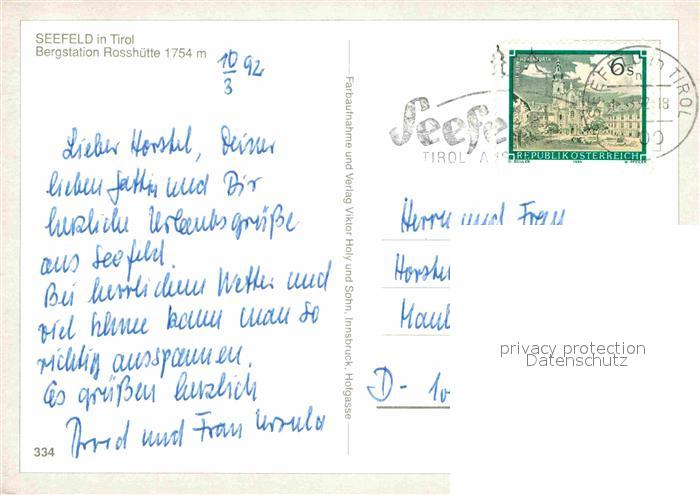 SEEFELD in Tirol
Bergstation Rosshütte 1754 m
10/3 92
Lieber Horstel, Deiner
lieben Gattin und Dir
herzliche Urlaubsgrüße
aus Seefeld.
Bei herrlichem Wetter und
viel Sonne kann man so
richtig ausspannen.
Es grüßen herzlich
und Frau Ursula
334
Farbaufnahme und Verlag Viktor Holy und Sohn, Innsbruck, Hofgasse
Seefe
TIROL
6 S
REPUBLIK ÖSTERREICH
SEEFELD in TIROL
Herrn und Frau
Horstel
D-
privacy protection
Datenschutz